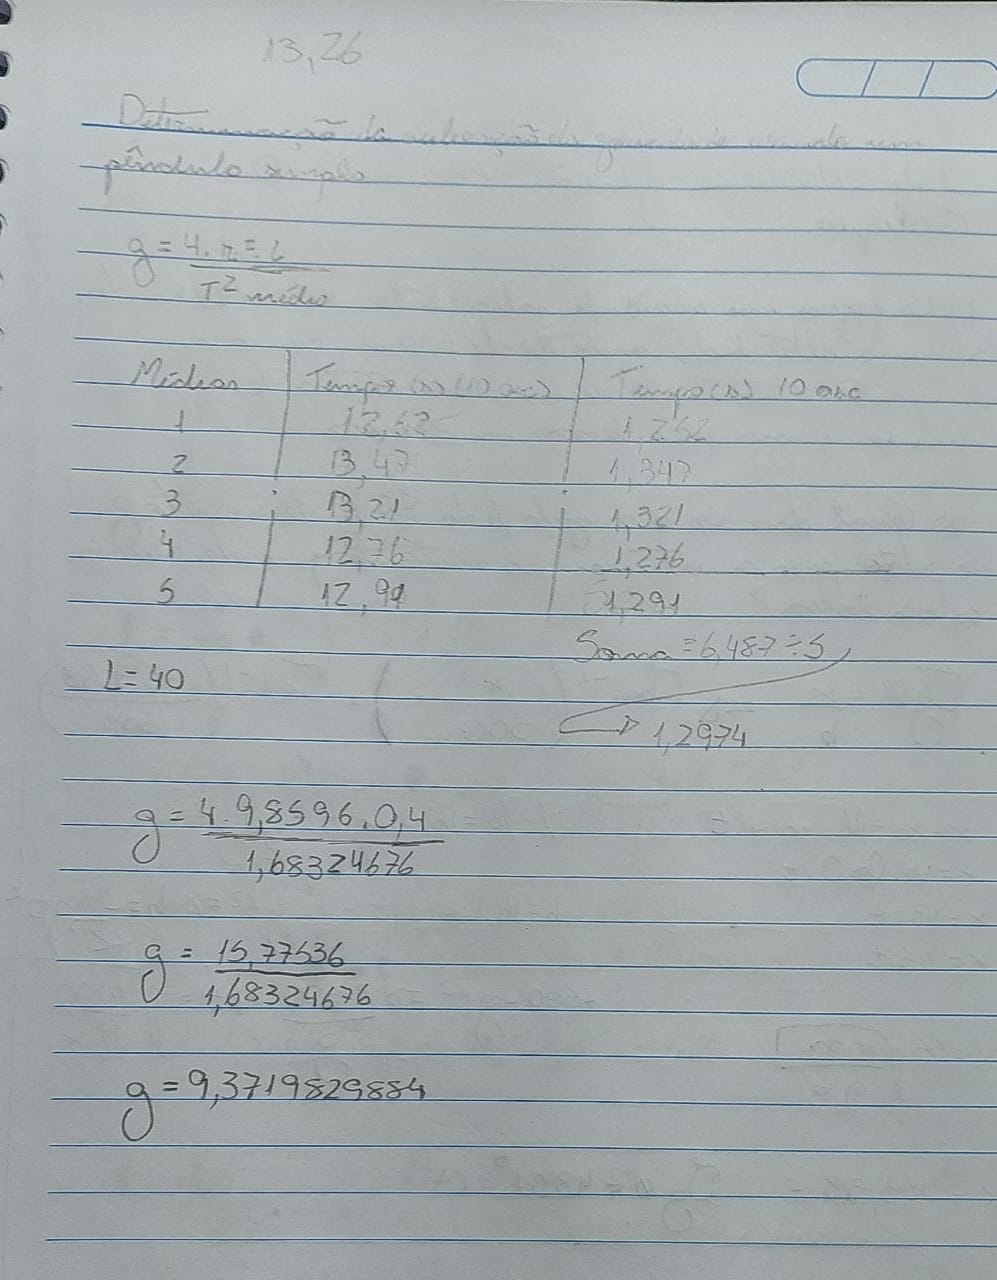 13,26
Determinação da aceleração da gravidade usando um
pêndulo simples
g = 4. π = L
T² médio
Médias Tempo (s) (10 osc) Tempo (s) 10 osc
1 12,62 1,262
2 13,47 1,347
3 13,21 1,321
4 12,76 1,276
5 12,91 1,291
Soma = 6,487 ÷ 5
L = 40
1,2974
g = 4. 9,8596 . 0,4
1,68324676
g = 15,77536
1,68324676
g = 9,3719829884